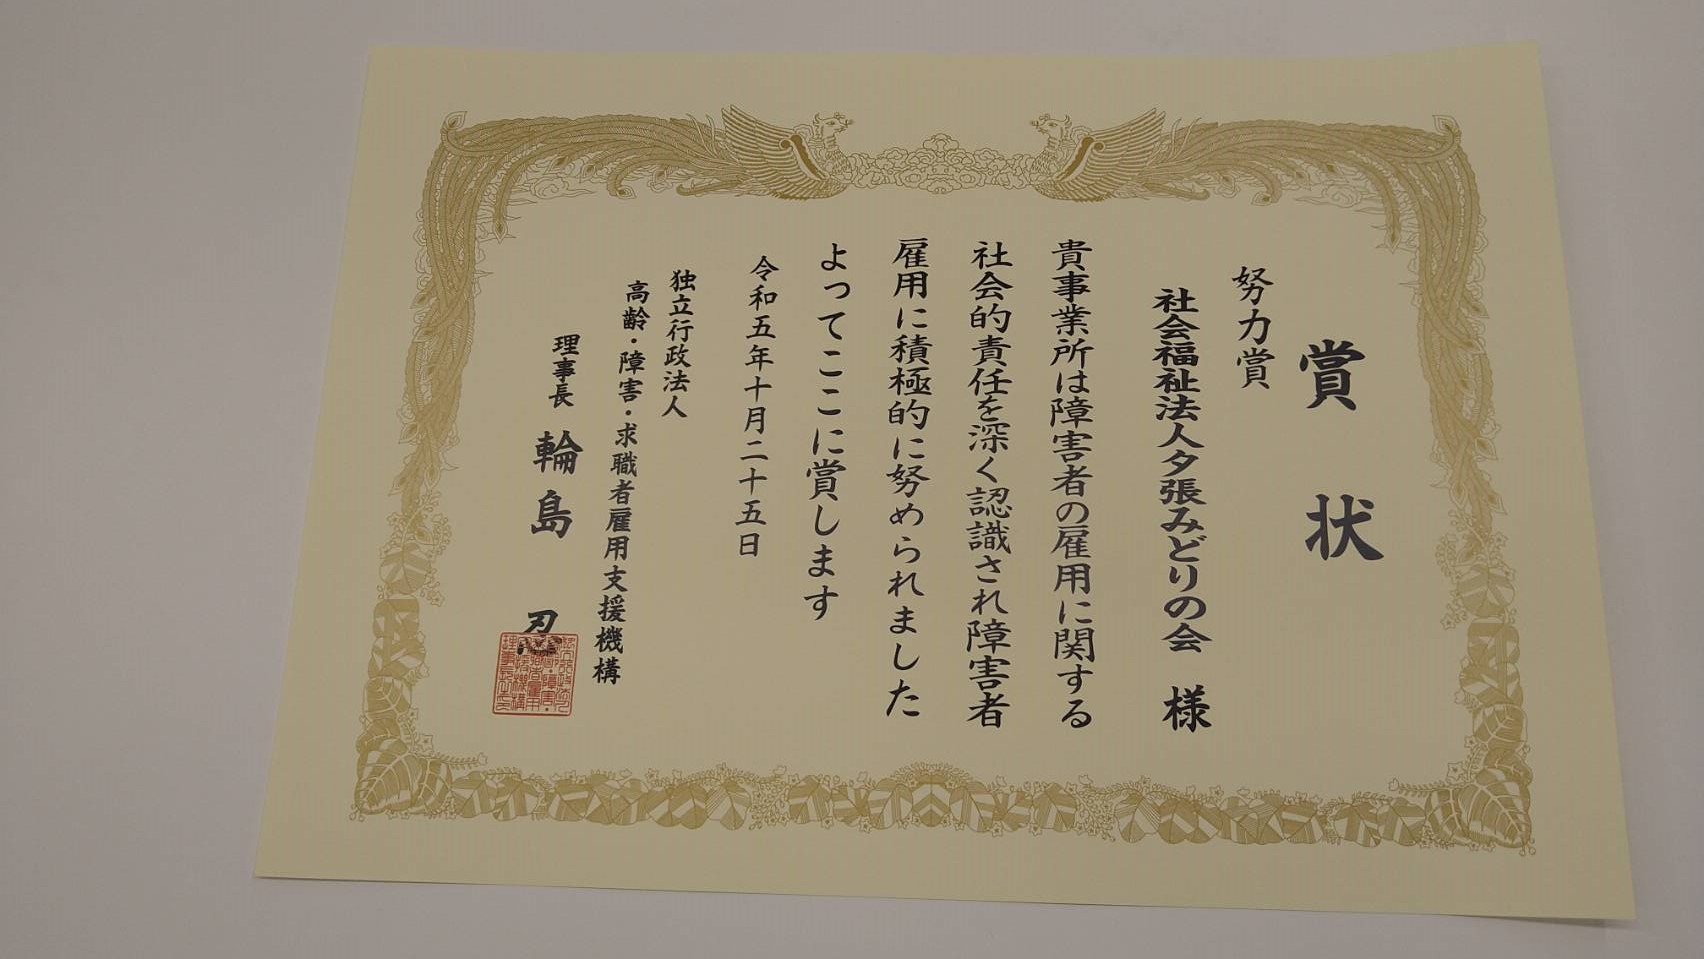 賞状
努力賞
社会福祉法人夕張みどりの会 様
貴事業所は障害者の雇用に関する
社会的責任を深く認識され障害者
雇用に積極的に努められました
よってここに賞します
令和五年十月二十五日
独立行政法人
高齢・障害・求職者雇用支援機構
理事長 輪島 忍